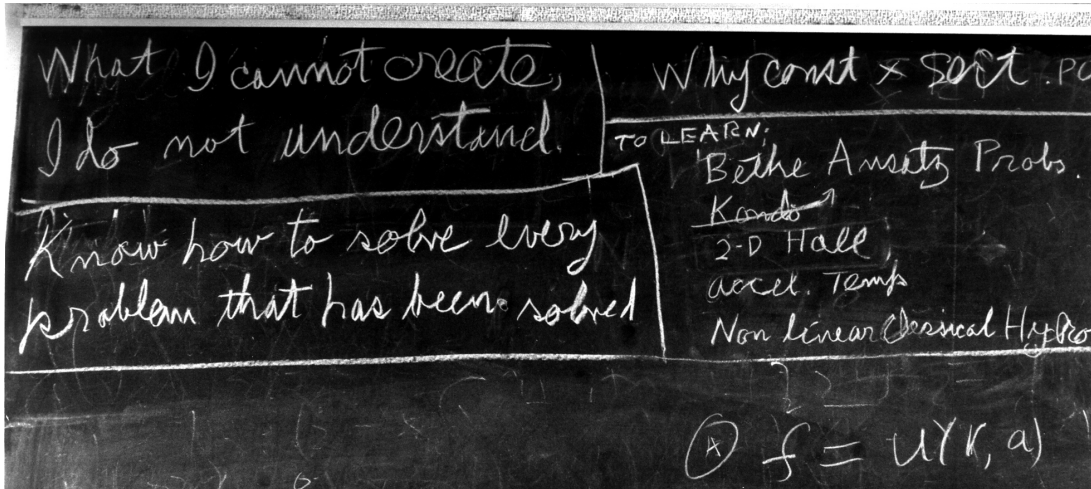 What I cannot create,
I do not understand.
Know how to solve every
problem that has been solved
Why const × sort . PO
TO LEARN:
Bethe Ansatz Probs.
Kondo
2-D Hall
accel. Temp
Non linear Classical Hydro
Ⓐ f = u(r, a)